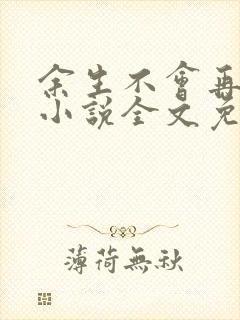 余生不會再
小說全文免
薄荷無秋